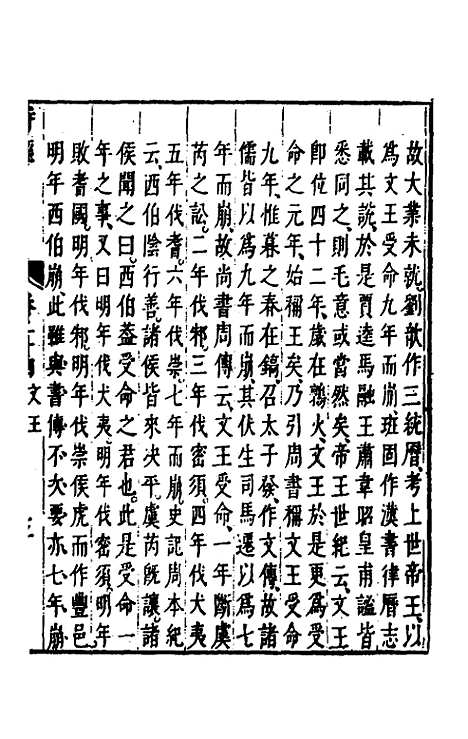 故大業未就劉歆作三統曆考上世帝王以
爲文王受命九年而崩班固作漢書律曆志
載其說於是賈逵馬融王肅韋昭皇甫謐皆
悉同之則毛意或當然矣帝王世紀云文王
卽位四十二年歲在鶉火文王於是更爲受
命之元年始稱王矣乃引周書稱文王受命
九年惟暮之春在鎬召太子發作文傳故諸
儒皆以爲九年而崩其伏生司馬遷以爲七
年而崩故尚書周傳云文王受命一年斷虞
芮之訟二年伐邘三年伐密須四年伐犬夷
五年伐耆六年伐崇七年而崩史記周本紀
云西伯陰行善諸侯皆來決平虞芮旣讓諸
侯聞之曰西伯蓋受命之君也此是受命一
年之事又曰明年伐犬夷明年伐密須明年
敗耆國明年伐邘明年伐崇侯虎而作豐邑
明年西伯崩此雖與書傳不次要亦七年崩
文王